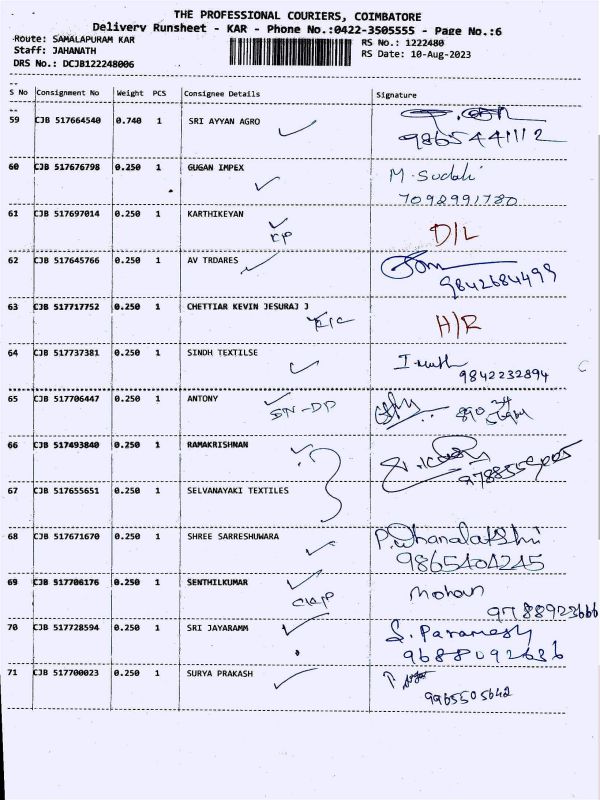 THE PROFESSIONAL COURIERS, COIMBATORE
Delivery Runsheet - KAR - Phone No.:0422-3505555 - Page No.:6
Route: SAMALAPURAM KAR
RS No.: 1222480
Staff: JAHANATH
RS Date: 10-Aug-2023
DRS No.: DCJB122248006
S No Consignment No Weight PCS Consignee Details Signature
59 CJB 517664540 0.740 1 SRI AYYAN AGRO
9865441112
60 CJB 517676798 0.250 1 GUGAN IMPEX M. Sudali
7092991780
61 CJB 517697014 0.250 1 KARTHIKEYAN
D/L
62 CJB 517645766 0.250 1 AV TRDARES
9842684499
63 CJB 517717752 0.250 1 CHETTIAR KEVIN JESURAJ J
H/R
64 CJB 517737381 0.250 1 SINDH TEXTILSE
9842232894
65 CJB 517706447 0.250 1 ANTONY
SN-DD
66 CJB 517493840 0.250 1 RAMAKRISHNAN
67 CJB 517655651 0.250 1 SELVANAYAKI TEXTILES
68 CJB 517671670 0.250 1 SHREE SARRESHUWARA P. Dhanalatshmi
9865404245
69 CJB 517706176 0.250 1 SENTHILKUMAR Mohan
9788923666
70 CJB 517728594 0.250 1 SRI JAYARAMM S. Paramesh
9688092636
71 CJB 517700023 0.250 1 SURYA PRAKASH
9965505642